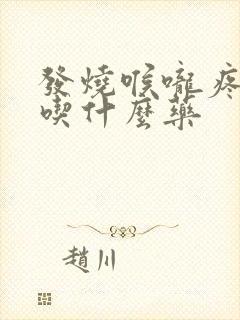 發燒喉嚨疼
喫什麼藥
趙川